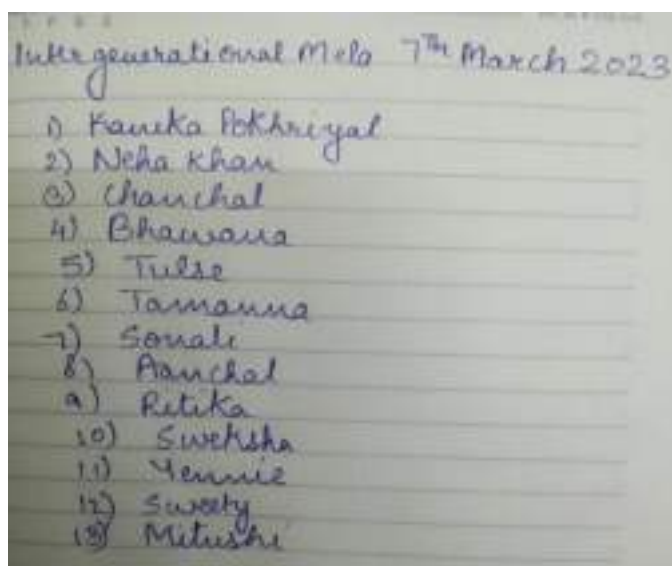 Intergenerational Mela 7th March 2023
1) Kanika Pokhriyal
2) Neha Khan
3) Chanchal
4) Bhawana
5) Tulse
6) Tamanna
7) Sonali
8) Aanchal
9) Ritika
10) Sweksha
11) Yennie
12) Sweety
13) Mitushi